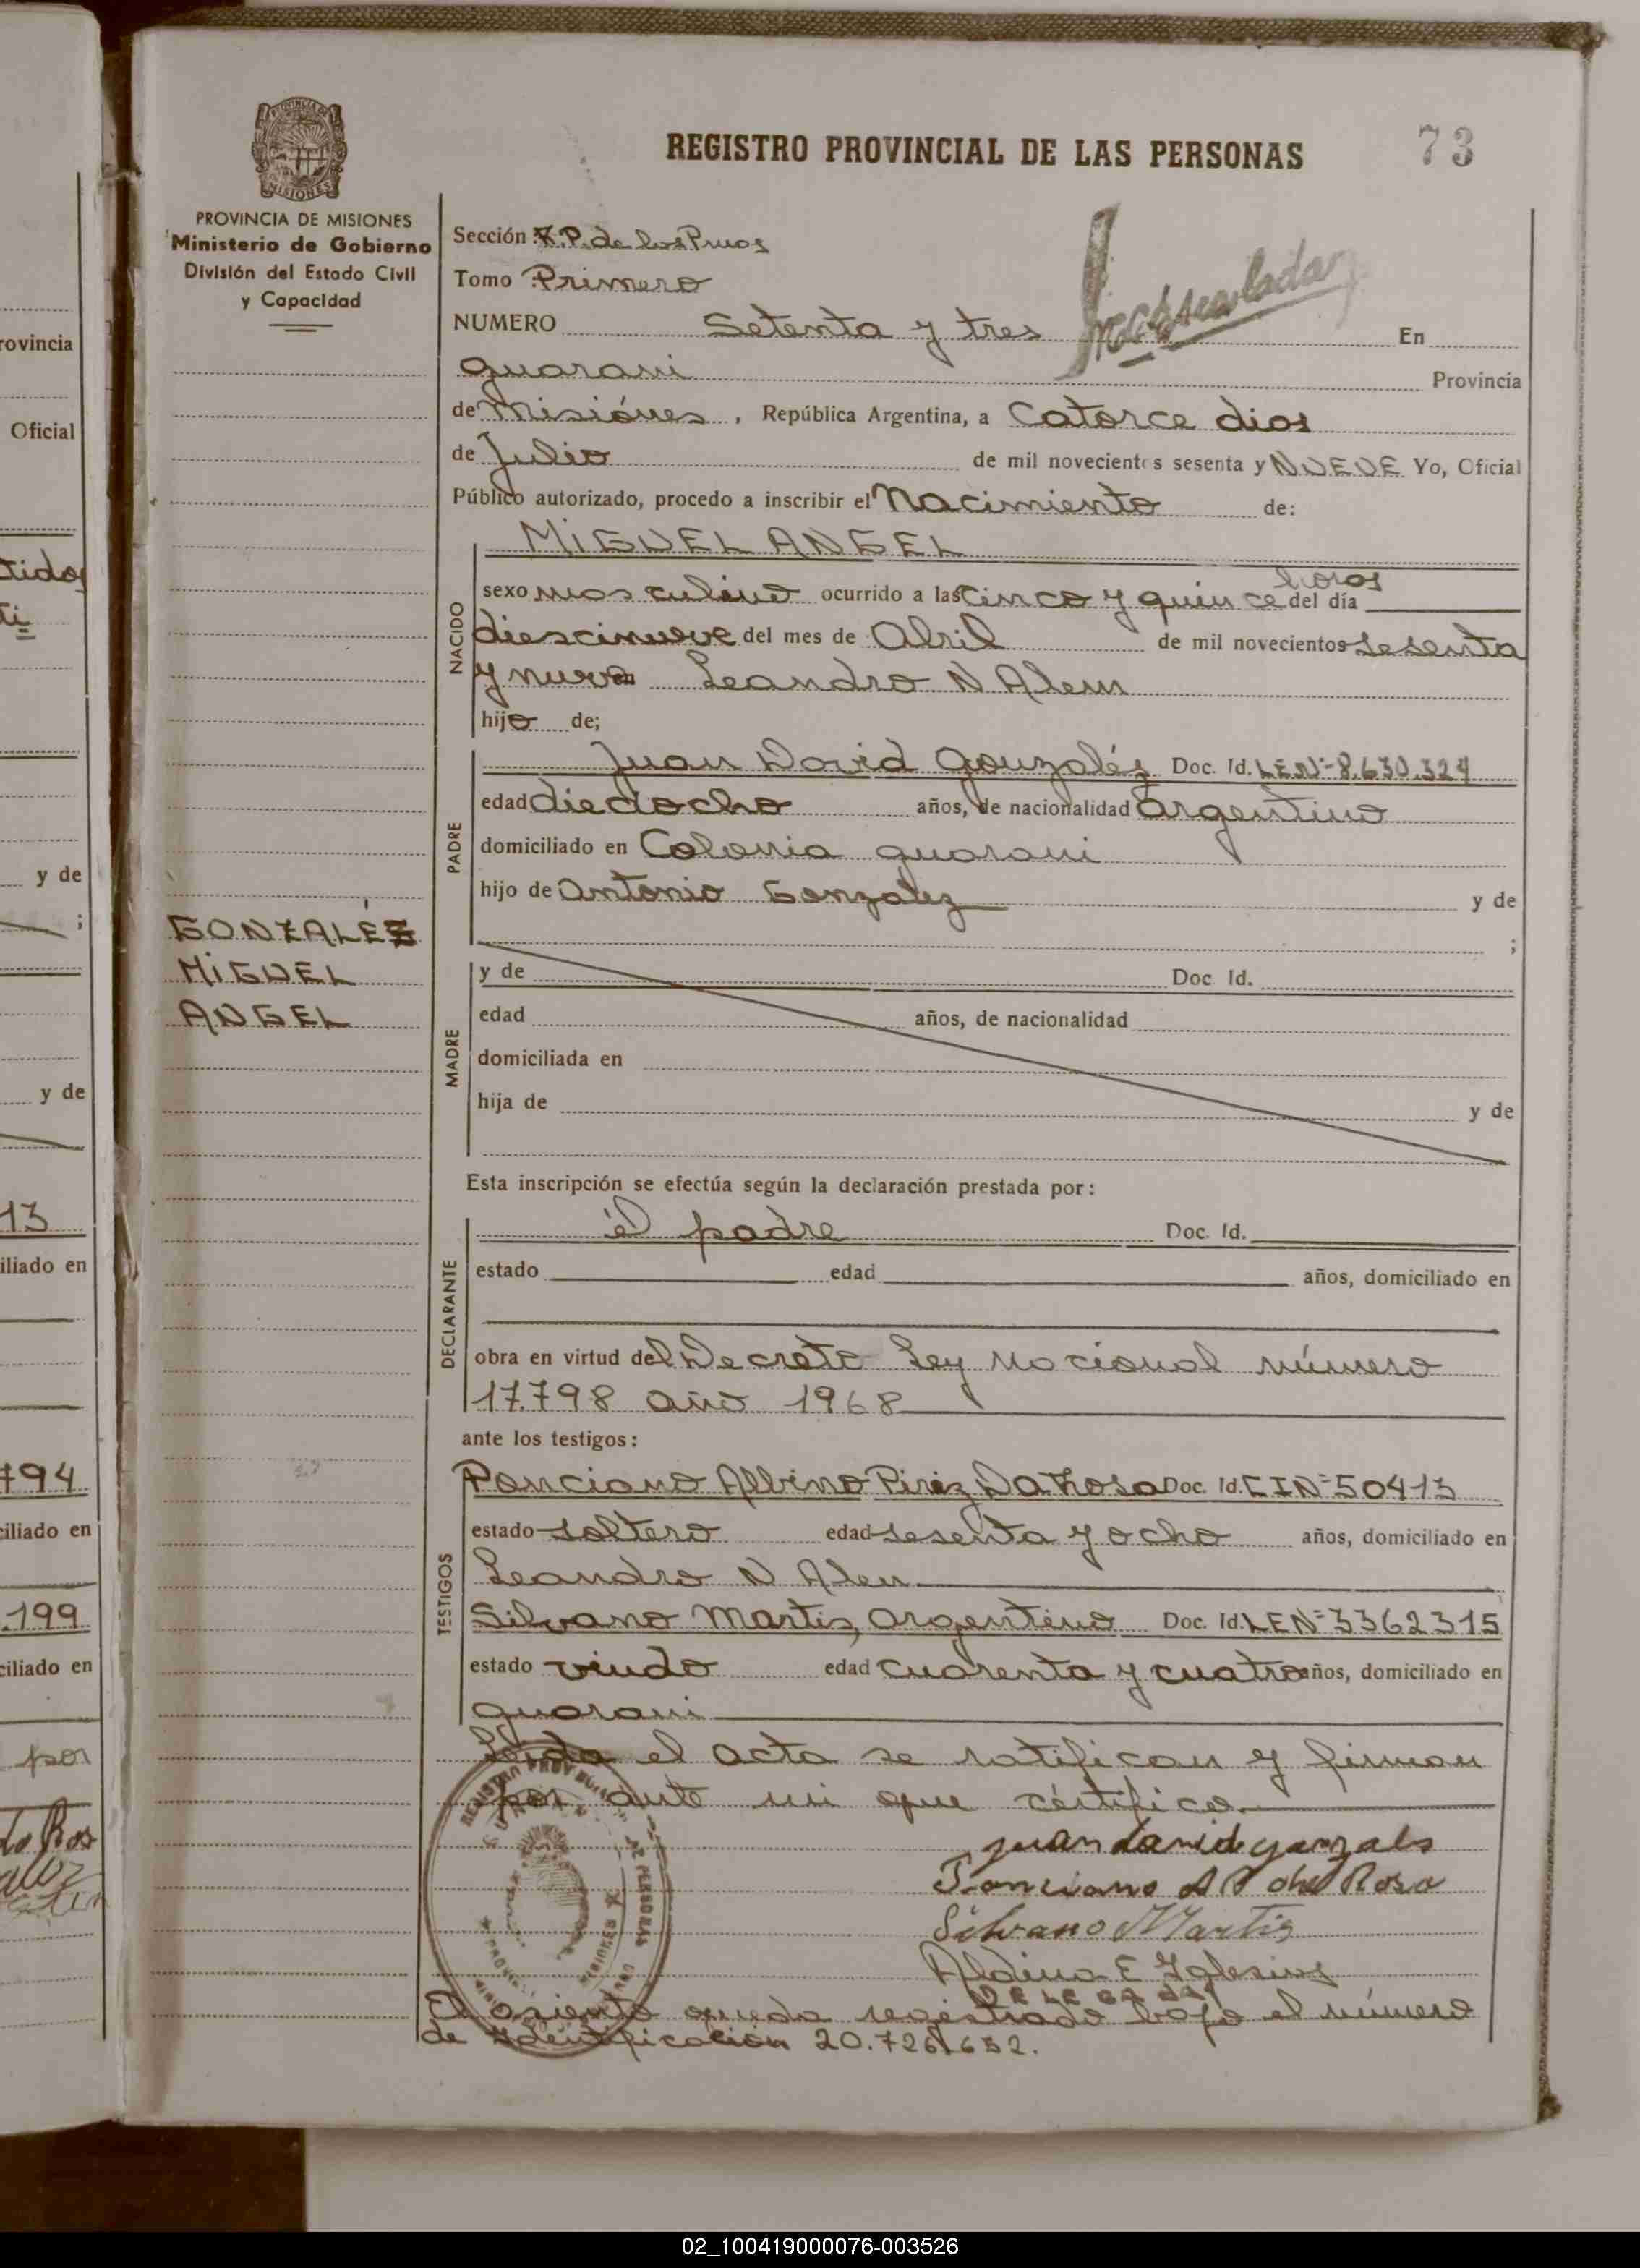 rovincia
Oficial
y de
;
y de
13
iliado en
794
ciliado en
.199
ciliado en
por
PROVINCIA DE MISIONES
Ministerio de Gobierno
División del Estado Civil
y Capacidad
GONZALÉZ
MIGUEL
ANGEL
REGISTRO PROVINCIAL DE LAS PERSONAS 73
Sección R.P. de las Prnas
Tomo Primero
NUMERO Setenta y tres En
guarani Provincia
de Misiónes, República Argentina, a Catorce dias
de Julio de mil novecientos sesenta y NUEVE Yo, Oficial
Público autorizado, procedo a inscribir el Nacimiento de:
MIGUEL ANGEL
NACIDO
sexo masculino ocurrido a las cinco y quince horas del día
diescinueve del mes de Abril de mil novecientos sesenta
y nueve Leandro N Alem
hijo de;
PADRE
Juan David Gonzaléz Doc. Id. LEN=8.630.324
edad dieciocho años, de nacionalidad argentino
domiciliado en Colonia guarani
hijo de Antonio Gonzalez y de
;
MADRE
y de Doc Id.
edad años, de nacionalidad
domiciliada en
hija de y de
Esta inscripción se efectúa según la declaración prestada por:
DECLARANTE
él padre Doc. Id.
estado edad años, domiciliado en
obra en virtud del Decreto Ley nacional número
17.798 año 1968
ante los testigos:
TESTIGOS
Ponciano Albino Piriz Da Rosa Doc. Id. CIN=50413
estado soltero edad sesenta y ocho años, domiciliado en
Leandro N Alem
Silvano Martis, argentino Doc. Id. LEN=3362315
estado viudo edad cuarenta y cuatro años, domiciliado en
guarani
Leida el acta se ratifican y firman
por ante mi que cértifico
juan david gonzals
Ponciano A P da Rosa
Silvano Martis
Aldina E Iglesias
DELEGADA
El asiento queda registrado bajo el número
de identificación 20.726.652.
02_100419000076-003526